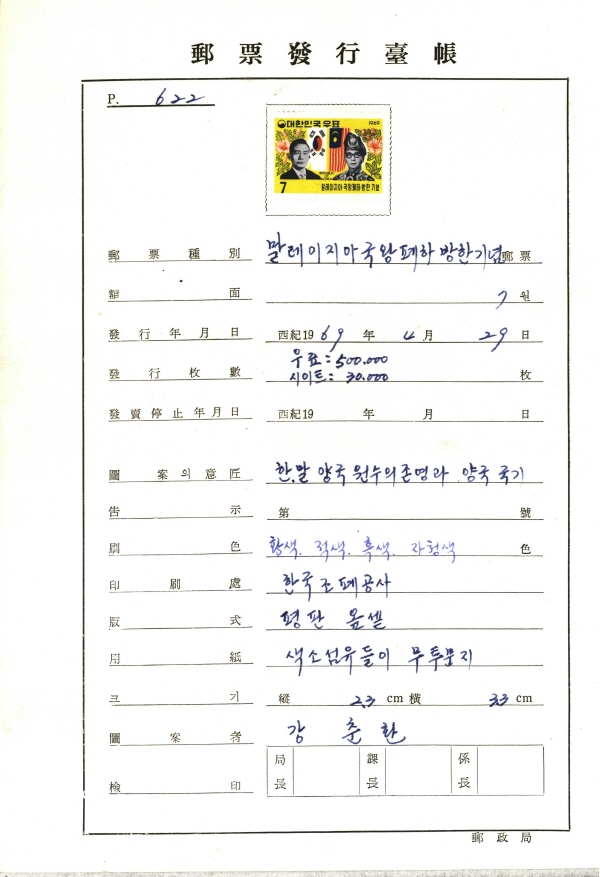 郵票發行臺帳
P. 622
대한민국우표 1969
7 말레이지아 국왕폐하 방한 기념
郵票種別 말레이지아국왕폐하방한기념郵票
額面 7원
發行年月日 西紀1969年 4月 29日
우표:500.000
發行枚數 시이트:30.000 枚
發賣停止年月日 西紀19 年 月 日
圖案의意匠 한.말 양국 원수의존영과 양국 국기
告示 第 號
刷色 황색. 적색. 흑색. 자청색 色
印刷處 한국조폐공사
版式 평판 옵셀
用紙 색소섬유들이 무투문지
크기 縱 2.3 cm 橫 3.3 cm
圖案者 강춘환
檢印 局長 課長 係長
郵政局